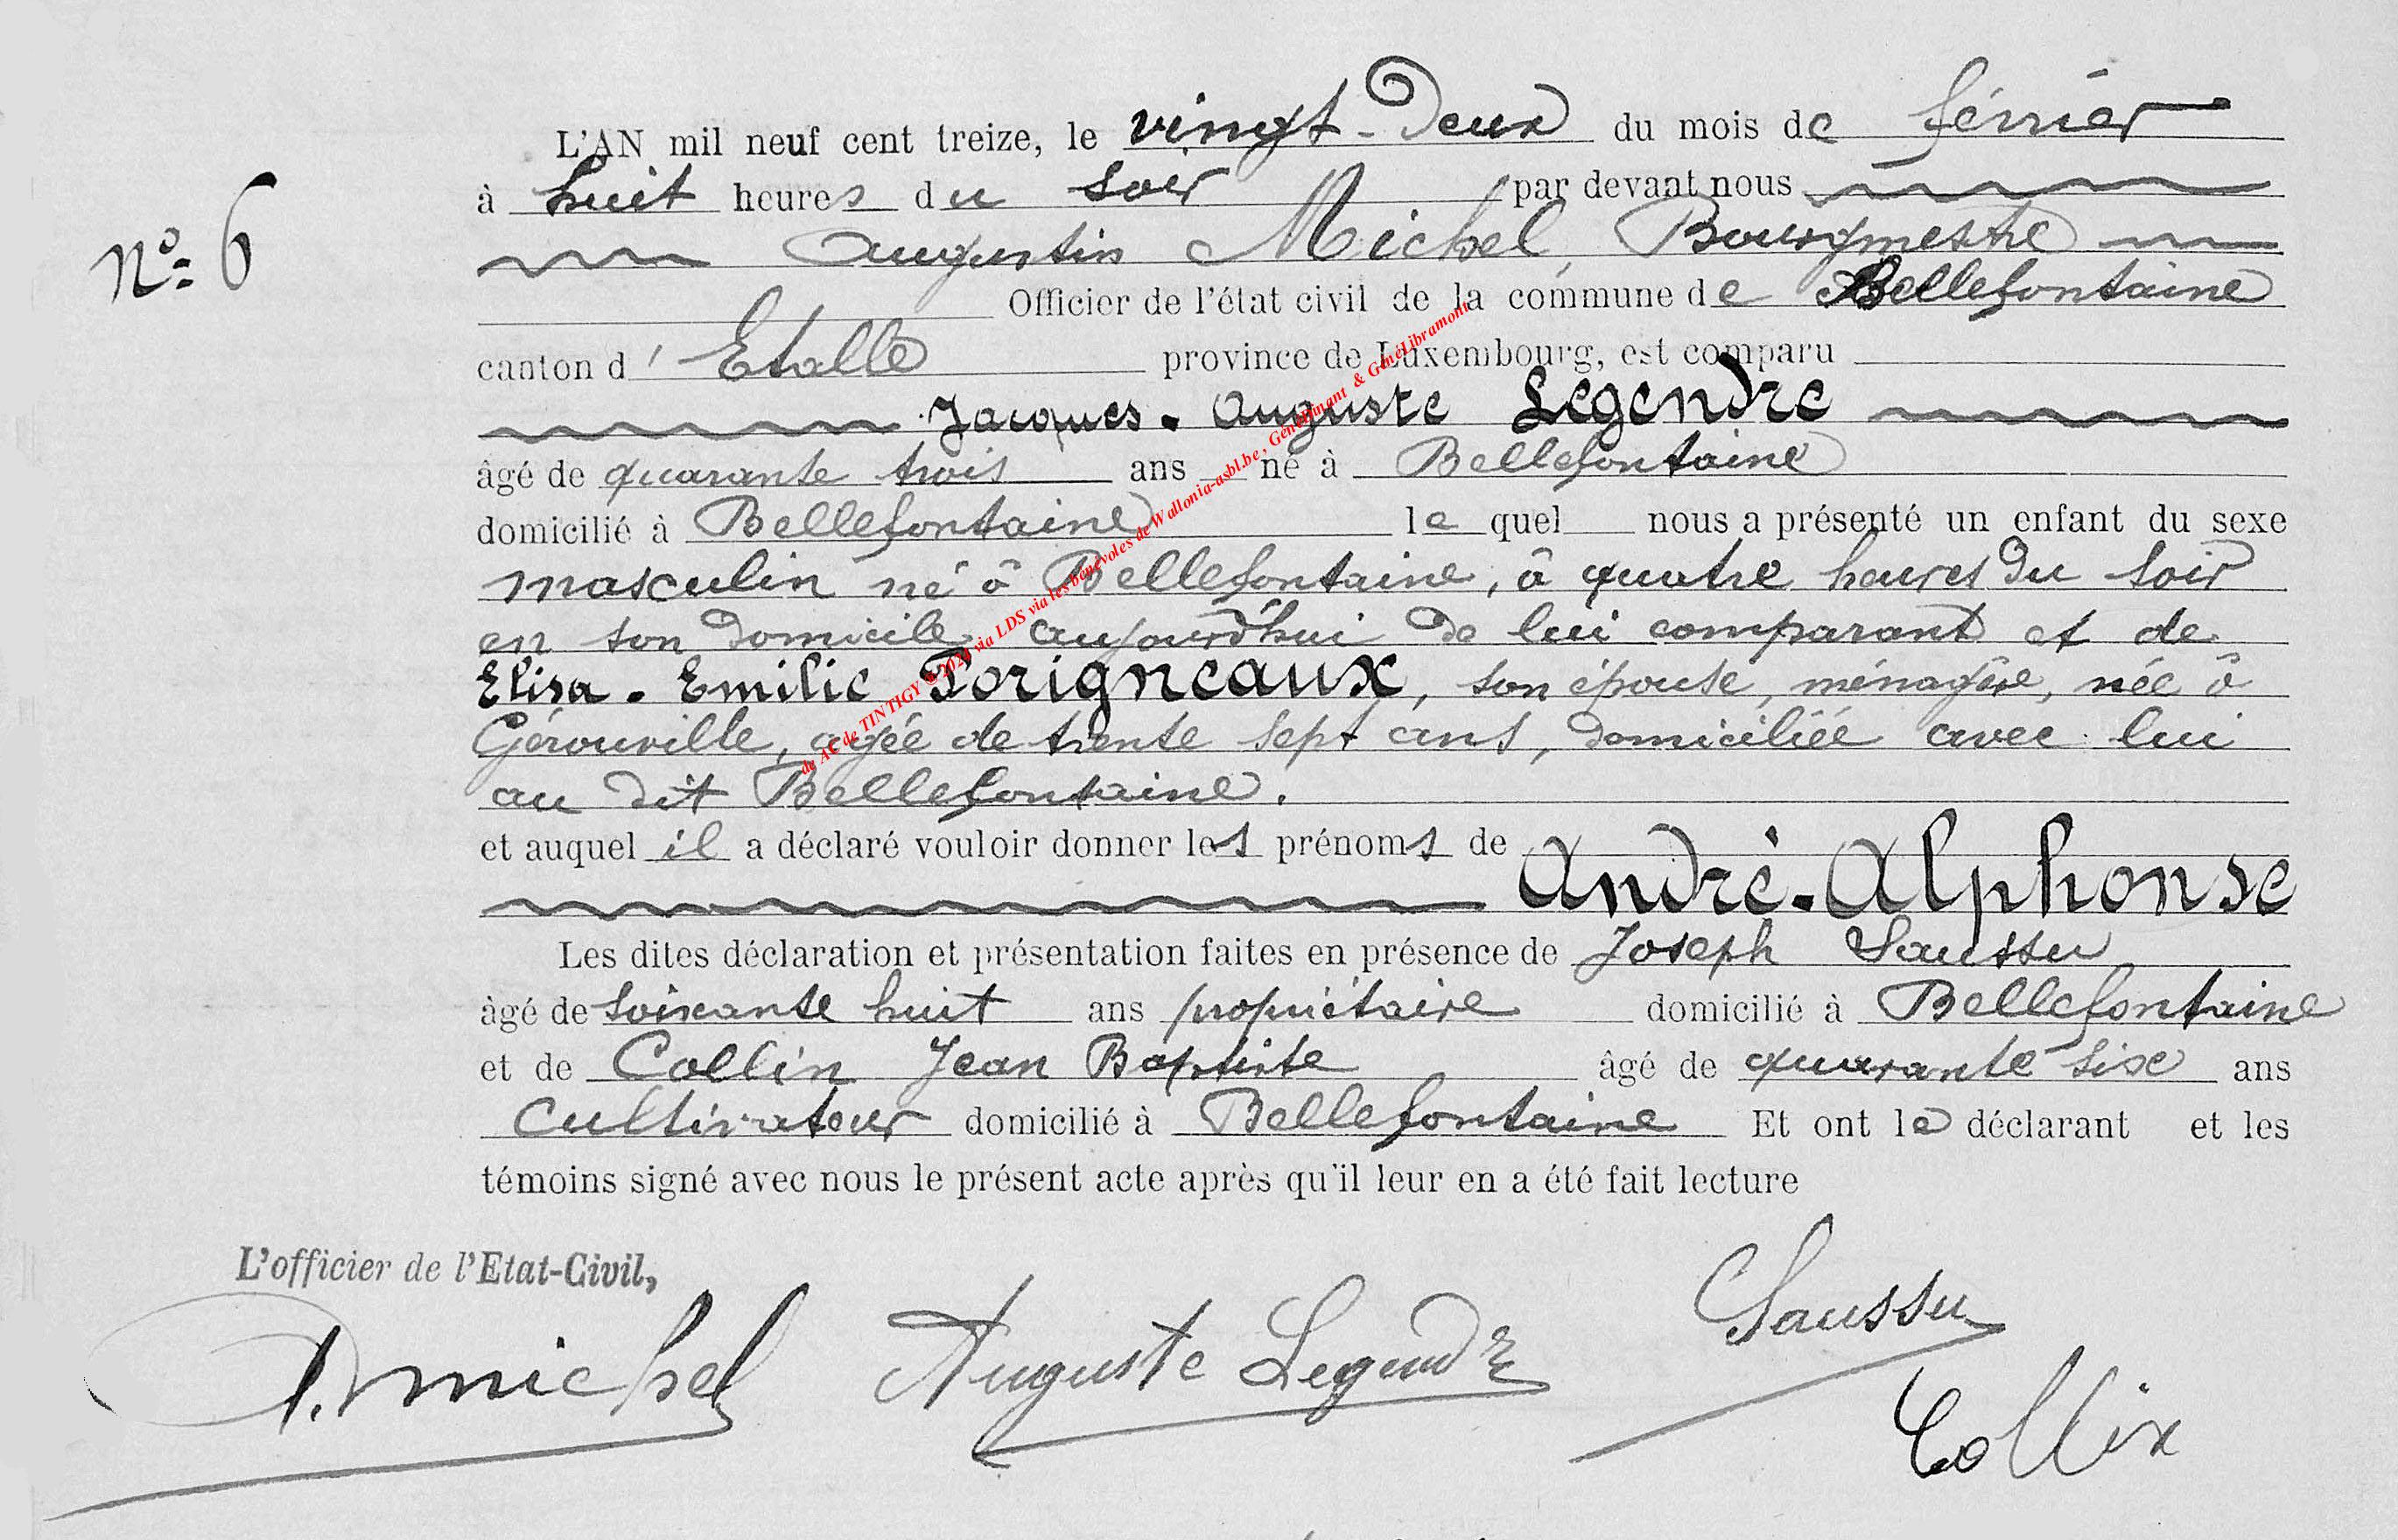 L'AN mil neuf cent treize, le vingt-deux du mois de février
à huit heures du soir par devant nous
Nº 6
Augustin Michel, Bourgmestre
Officier de l'état civil de la commune de Bellefontaine
canton d' Etalle province de Luxembourg, est comparu
Jacques-Auguste Legendre
âgé de quarante trois ans né à Bellefontaine
domicilié à Bellefontaine le quel nous a présenté un enfant du sexe
masculin né à Bellefontaine, à quatre heures du soir
en son domicile aujourd'hui de lui comparant et de
Elisa-Emilie Porigneaux, son épouse, ménagère, née à
Gérouville, agée de trente sept ans, domiciliée avec lui
au dit Bellefontaine.
et auquel il a déclaré vouloir donner les prénoms de
André-Alphonse
Les dites déclaration et présentation faites en présence de Joseph Saussu
âgé de soixante huit ans propriétaire domicilié à Bellefontaine
et de Collin Jean Baptiste âgé de quarante six ans
cultivateur domicilié à Bellefontaine Et ont le déclarant et les
témoins signé avec nous le présent acte après qu'il leur en a été fait lecture
L'officier de l'Etat-Civil,
A. Michel Auguste Legendre Saussu
Collin
du AC de TINTIGY ©2024 via LDS via les bénévoles de Wallonia-asbl.be, GénéDinant & GénéLibramont